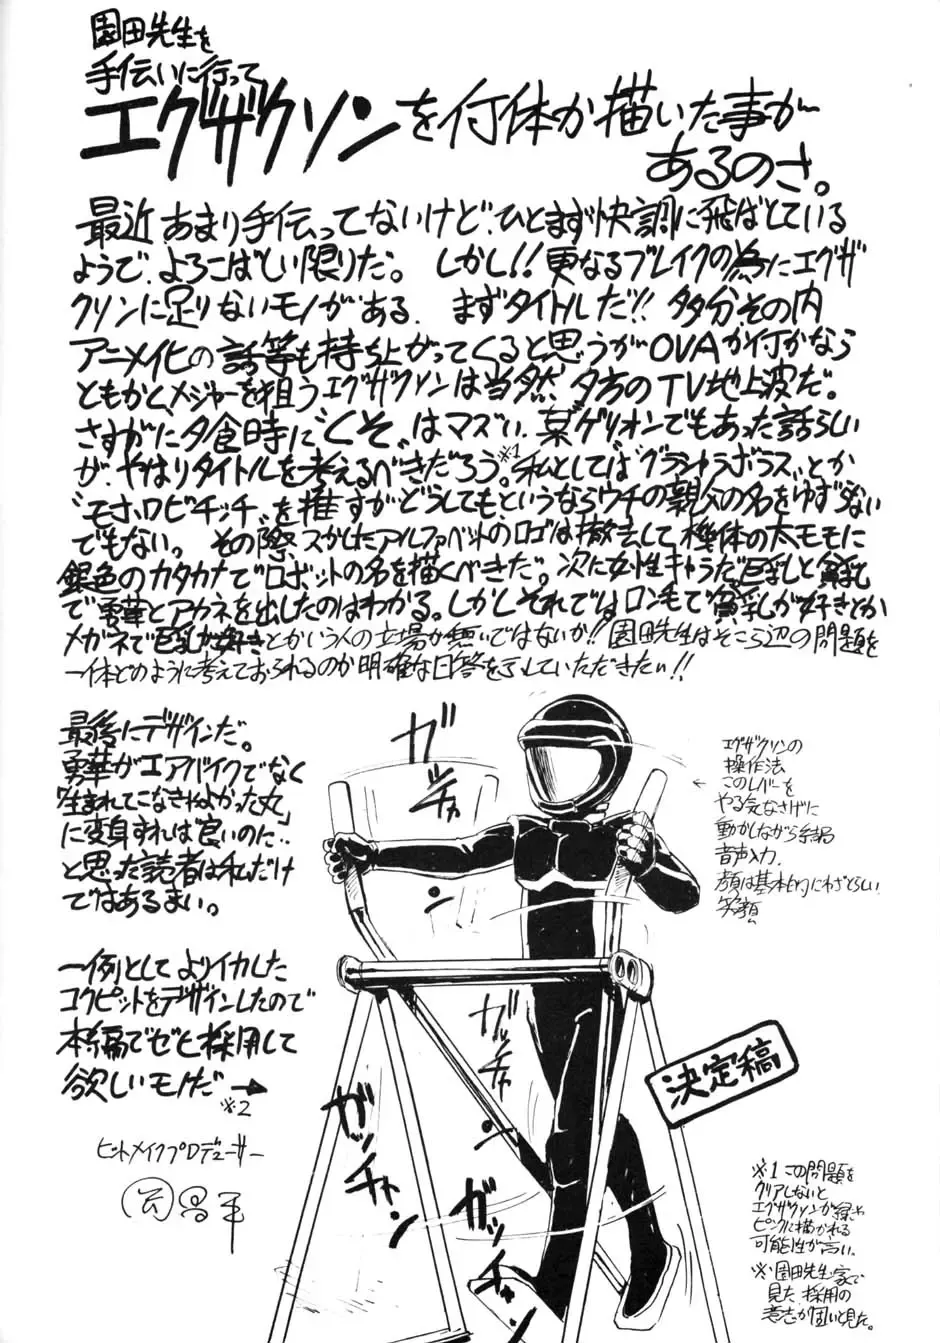 園田先生を
手伝いに行って
エグザクソンを何体か描いた事が
あるのさ。
最近あまり手伝ってないけど、ひとまず快調に飛ばしている
ようで、よろこばしい限りだ。 しかし!!更なるブレイクの為にエグザ
クソンに足りないモノがある。 まずタイトルだ!! 多分その内
アニメイヒの話等も持ち上がってくると思うがOVAか何かなら
ともかく、メジャーを狙うエグザクソンは当然 夕方のTV地上波だ。
さすがに夕食時に“くそ”はマズい、某ゲリオンでもあった話らしい
が、やはりタイトルを考えるべきだろう。※1 私としては“グラントラボラス”とか
“モホロビチッチ”を推すがどうしてもというならウチの親父の名をゆずらない
でもない。 その際 スかしたアルファベットのロゴは撤去して 機体の太モモに
銀色のカタカナでロボットの名を描くべきだ。次に女性キャラだ巨乳と貧乳
で勇華とアカネを出したのはわかる。しかしそれではロン毛で貧乳が好きとか
メガネで巨乳が好きとかいう人の立場が無いではないか!! 園田先生はそこら辺の問題を
一体どのように考えておられるのか明確な回答を示していただきたい!!
最後にデザインだ。
勇華がエアバイクでなく
「生まれてこなきゃよかった丸」
に変身すれば良いのに…
と思った読者は私だけ
ではあるまい。
一例として よりイカした
コクピットをデザインしたので
本編でゼヒ採用して
欲しいモノだ →
※2
ヒットメイクプロデューサー
ガ
チャ
ン
ガッチャン
ガッチャン
エグザクソンの
操作法
←このレバーを
やる気なさげに
動かしながら
音声入力.
顔は基本的にわざとらしい
笑顔
決定稿
※1 この問題を
クリアしないと
エグザクソンが緑や
ピンクに描かれる
可能性が高い.
※園田先生家で
見た.採用の
意志が固いと見た。